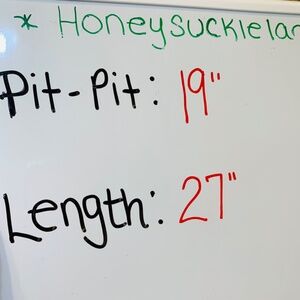 * Honeysucklelan
Pit-Pit: 19"
Length: 27"